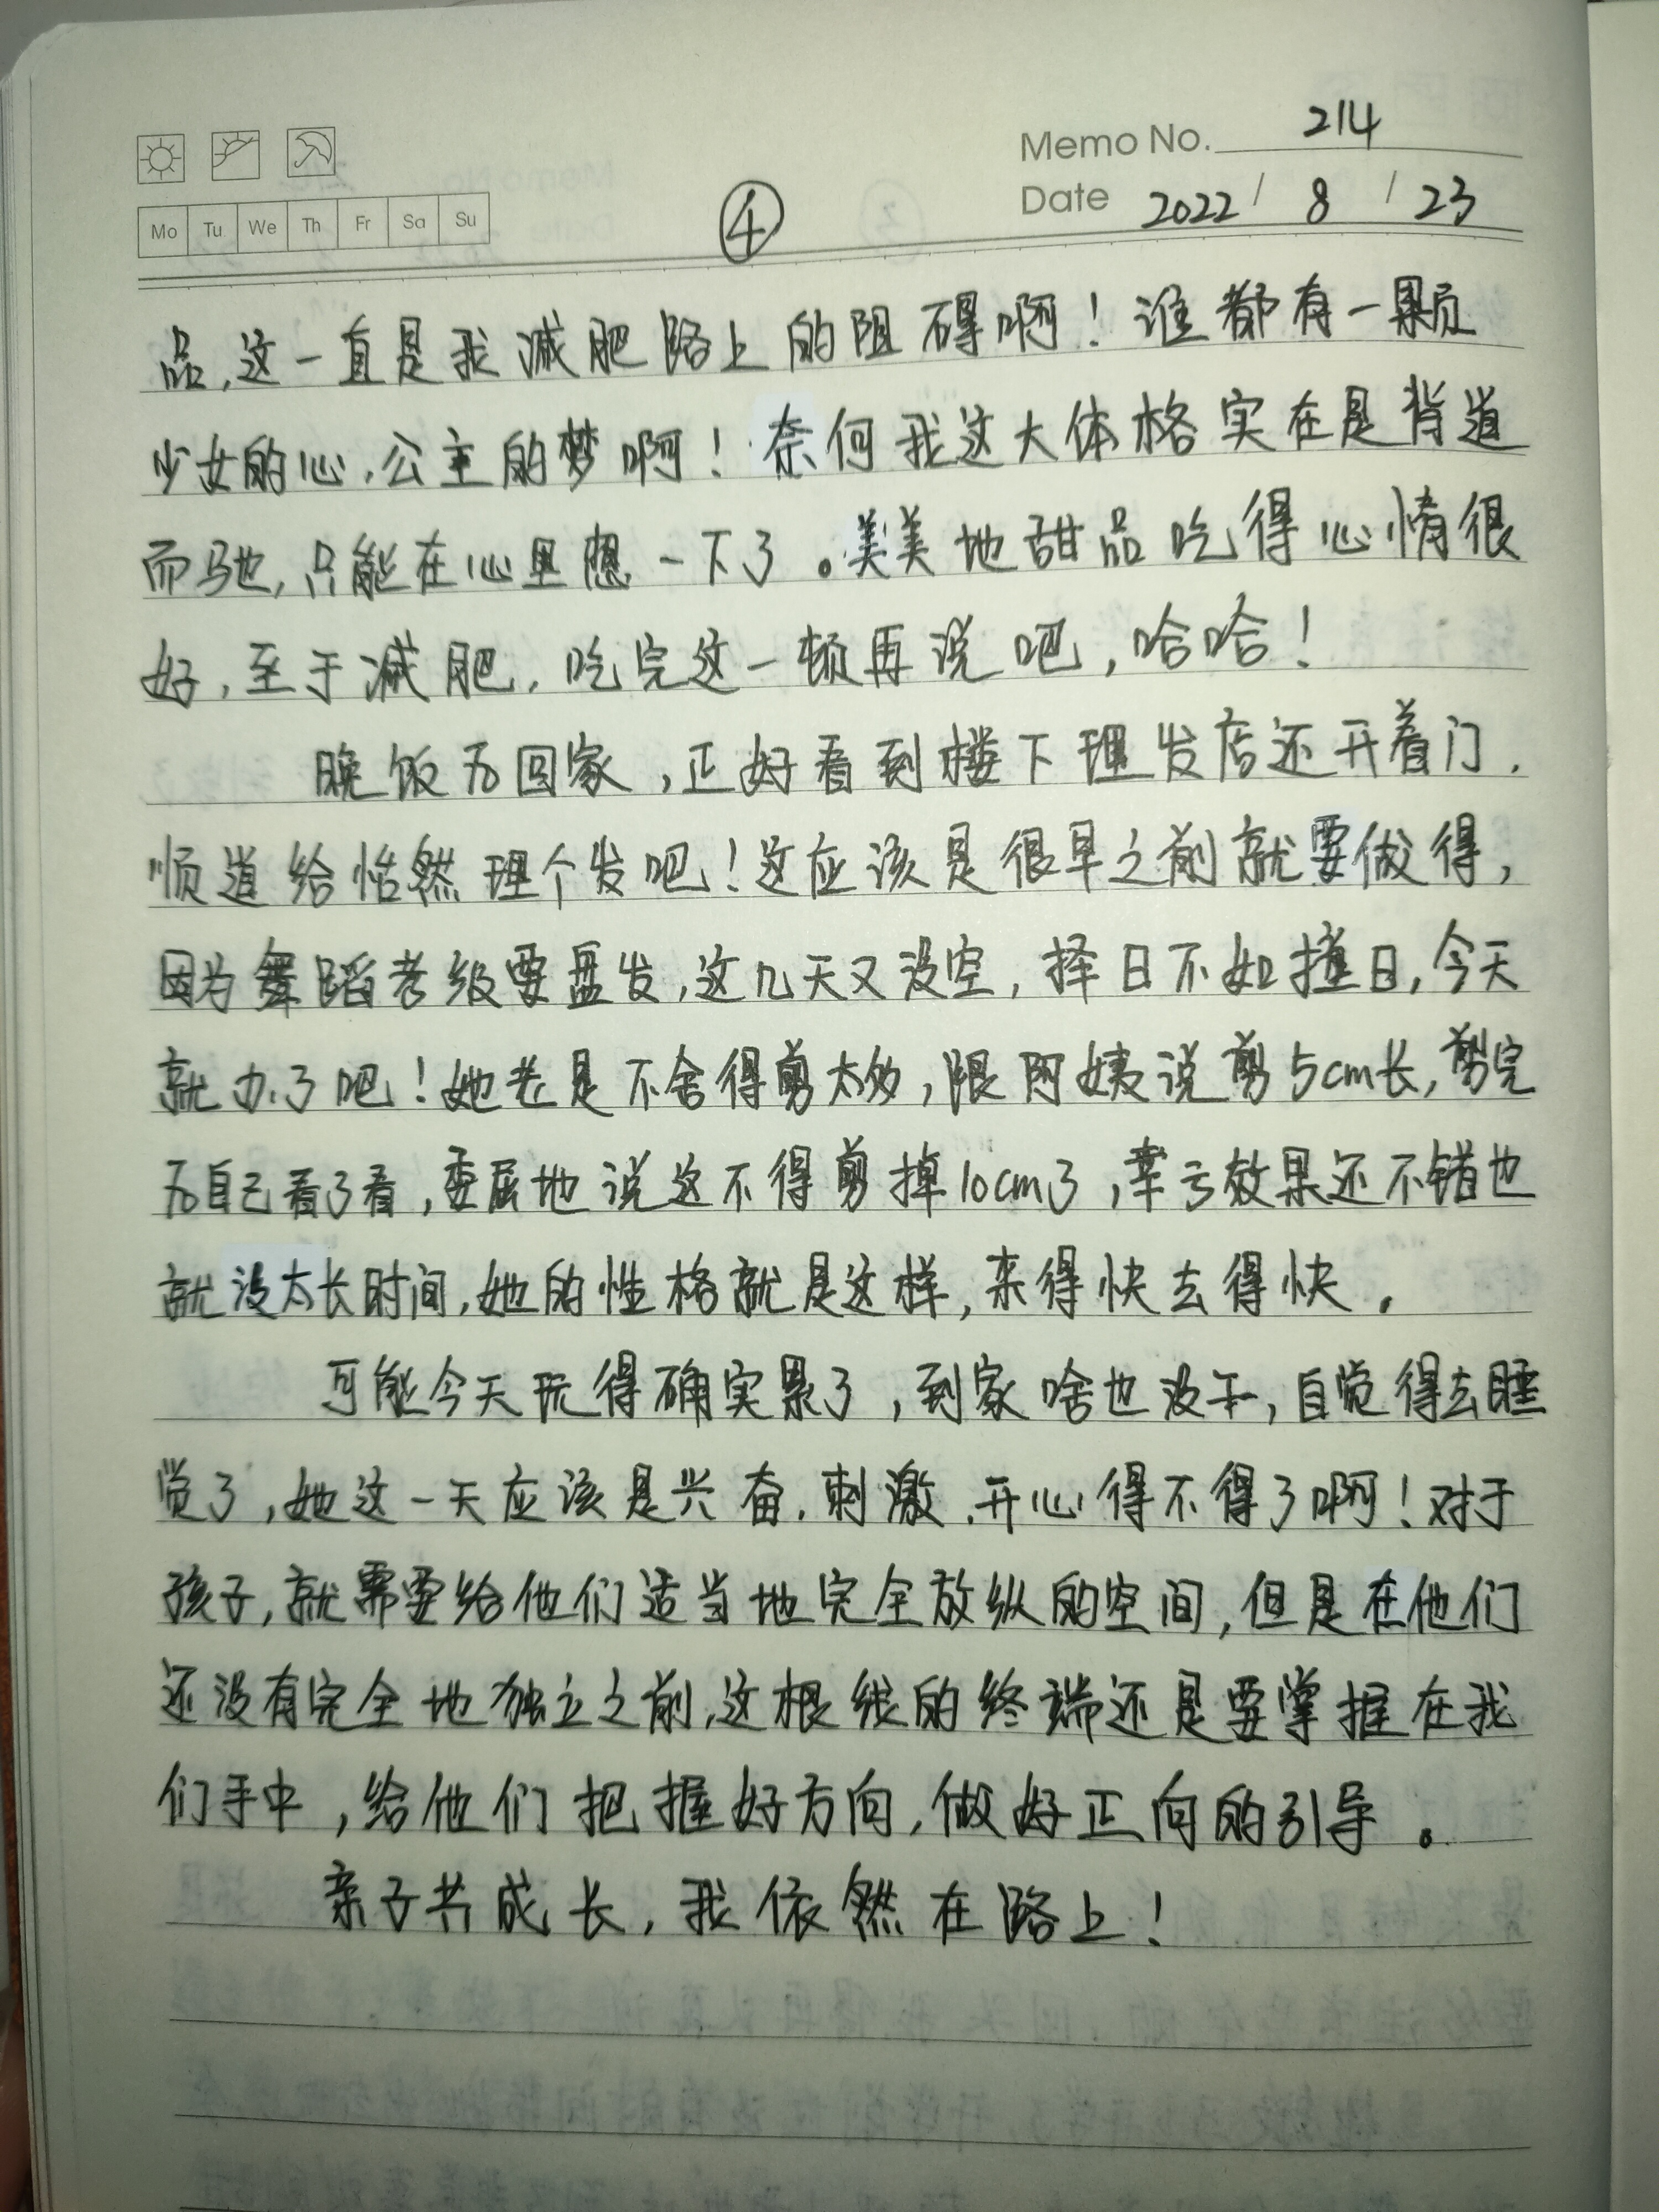 Memo No. 214
Mo Tu We Th Fr Sa Su
④
Date 2022 / 8 / 23
品,这一直是我减肥路上的阻碍啊!谁都有一颗
少女的心,公主的梦啊!奈何我这大体格实在是背道
而驰,只能在心里想一下了。美美地甜品吃得心情很
好,至于减肥,吃完这一顿再说吧,哈哈!
晚饭后回家,正好看到楼下理发店还开着门.
顺道给怡然理个发吧!这应该是很早之前就要做得,
因为舞蹈考级要盘发,这几天又没空,择日不如撞日,今天
就办了吧!她老是不舍得剪太多,跟阿姨说剪5cm长,剪完
后自己看了看,委屈地说这不得剪掉10cm了,幸亏效果还不错也
就没太长时间,她的性格就是这样,来得快去得快.
可能今天玩得确实累了,到家啥也没干,自觉得去睡
觉了,她这一天应该是兴奋.刺激.开心得不得了啊!对于
孩子,就需要给他们适当地完全放纵的空间,但是在他们
还没有完全地独立之前,这根线的终端还是要掌握在我
们手中,给他们把握好方向,做好正向的引导。
亲子共成长,我依然在路上!